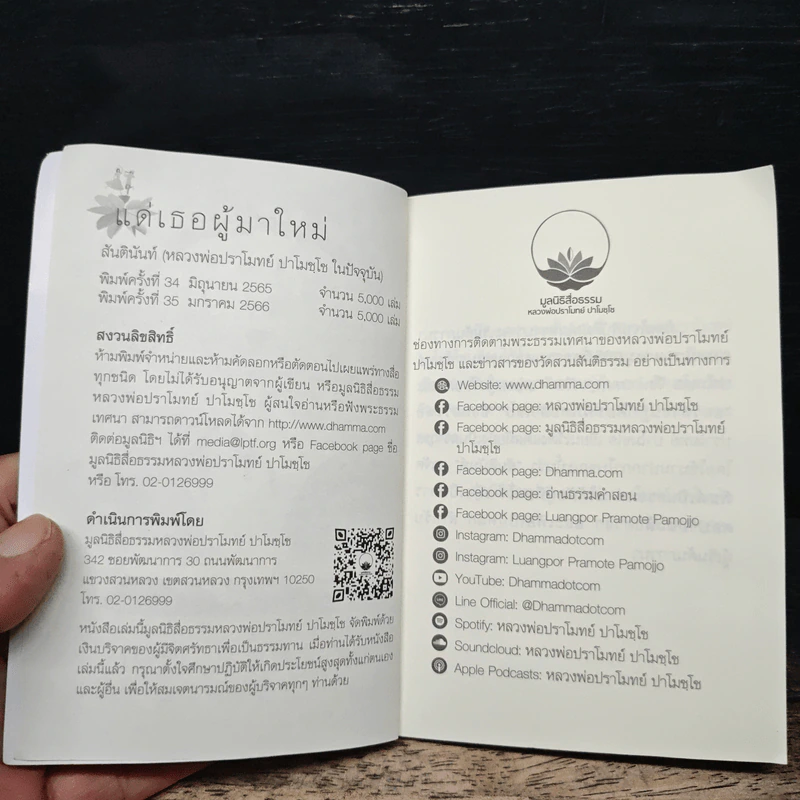 แด่เธอผู้มาใหม่
สันตินันท์ (หลวงพ่อปราโมทย์ ปาโมชฺโช ในปัจจุบัน)
พิมพ์ครั้งที่ 34 มิถุนายน 2565 จำนวน 5,000 เล่ม
พิมพ์ครั้งที่ 35 มกราคม 2566 จำนวน 5,000 เล่ม
สงวนลิขสิทธิ์
ห้ามพิมพ์จำหน่ายและห้ามคัดลอกหรือตัดตอนไปเผยแพร่ทางสื่อ
ทุกชนิด โดยไม่ได้รับอนุญาตจากผู้เขียน หรือมูลนิธิสื่อธรรม
หลวงพ่อปราโมทย์ ปาโมชฺโช ผู้สนใจอ่านหรือฟังพระธรรม
เทศนา สามารถดาวน์โหลดได้จาก http://www.dhamma.com
ติดต่อมูลนิธิฯ ได้ที่ media@lptf.org หรือ Facebook page ชื่อ
มูลนิธิสื่อธรรมหลวงพ่อปราโมทย์ ปาโมชฺโช
หรือ โทร. 02-0126999
ดำเนินการพิมพ์โดย
มูลนิธิสื่อธรรมหลวงพ่อปราโมทย์ ปาโมชฺโช
342 ซอยพัฒนาการ 30 ถนนพัฒนาการ
แขวงสวนหลวง เขตสวนหลวง กรุงเทพฯ 10250
โทร. 02-0126999
หนังสือเล่มนี้มูลนิธิสื่อธรรมหลวงพ่อปราโมทย์ ปาโมชฺโช จัดพิมพ์ด้วย
เงินบริจาคของผู้มีจิตศรัทธาเพื่อเป็นธรรมทาน เมื่อท่านได้รับหนังสือ
เล่มนี้แล้ว กรุณาตั้งใจศึกษาปฏิบัติให้เกิดประโยชน์สูงสุดทั้งแก่ตนเอง
และผู้อื่น เพื่อให้สมเจตนารมณ์ของผู้บริจาคทุกๆ ท่านด้วย
มูลนิธิสื่อธรรม
หลวงพ่อปราโมทย์ ปาโมชฺโช
ช่องทางการติดตามพระธรรมเทศนาของหลวงพ่อปราโมทย์
ปาโมชฺโช และข่าวสารของวัดสวนสันติธรรม อย่างเป็นทางการ
Website: www.dhamma.com
Facebook page: หลวงพ่อปราโมทย์ ปาโมชฺโช
Facebook page: มูลนิธิสื่อธรรมหลวงพ่อปราโมทย์
ปาโมชฺโช
Facebook page: Dhamma.com
Facebook page: อ่านธรรมคำสอน
Facebook page: Luangpor Pramote Pamojjo
Instagram: Dhammadotcom
Instagram: Luangpor Pramote Pamojjo
YouTube: Dhammadotcom
Line Official: @Dhammadotcom
Spotify: หลวงพ่อปราโมทย์ ปาโมชฺโช
Soundcloud: หลวงพ่อปราโมทย์ ปาโมชฺโช
Apple Podcasts: หลวงพ่อปราโมทย์ ปาโมชฺโช